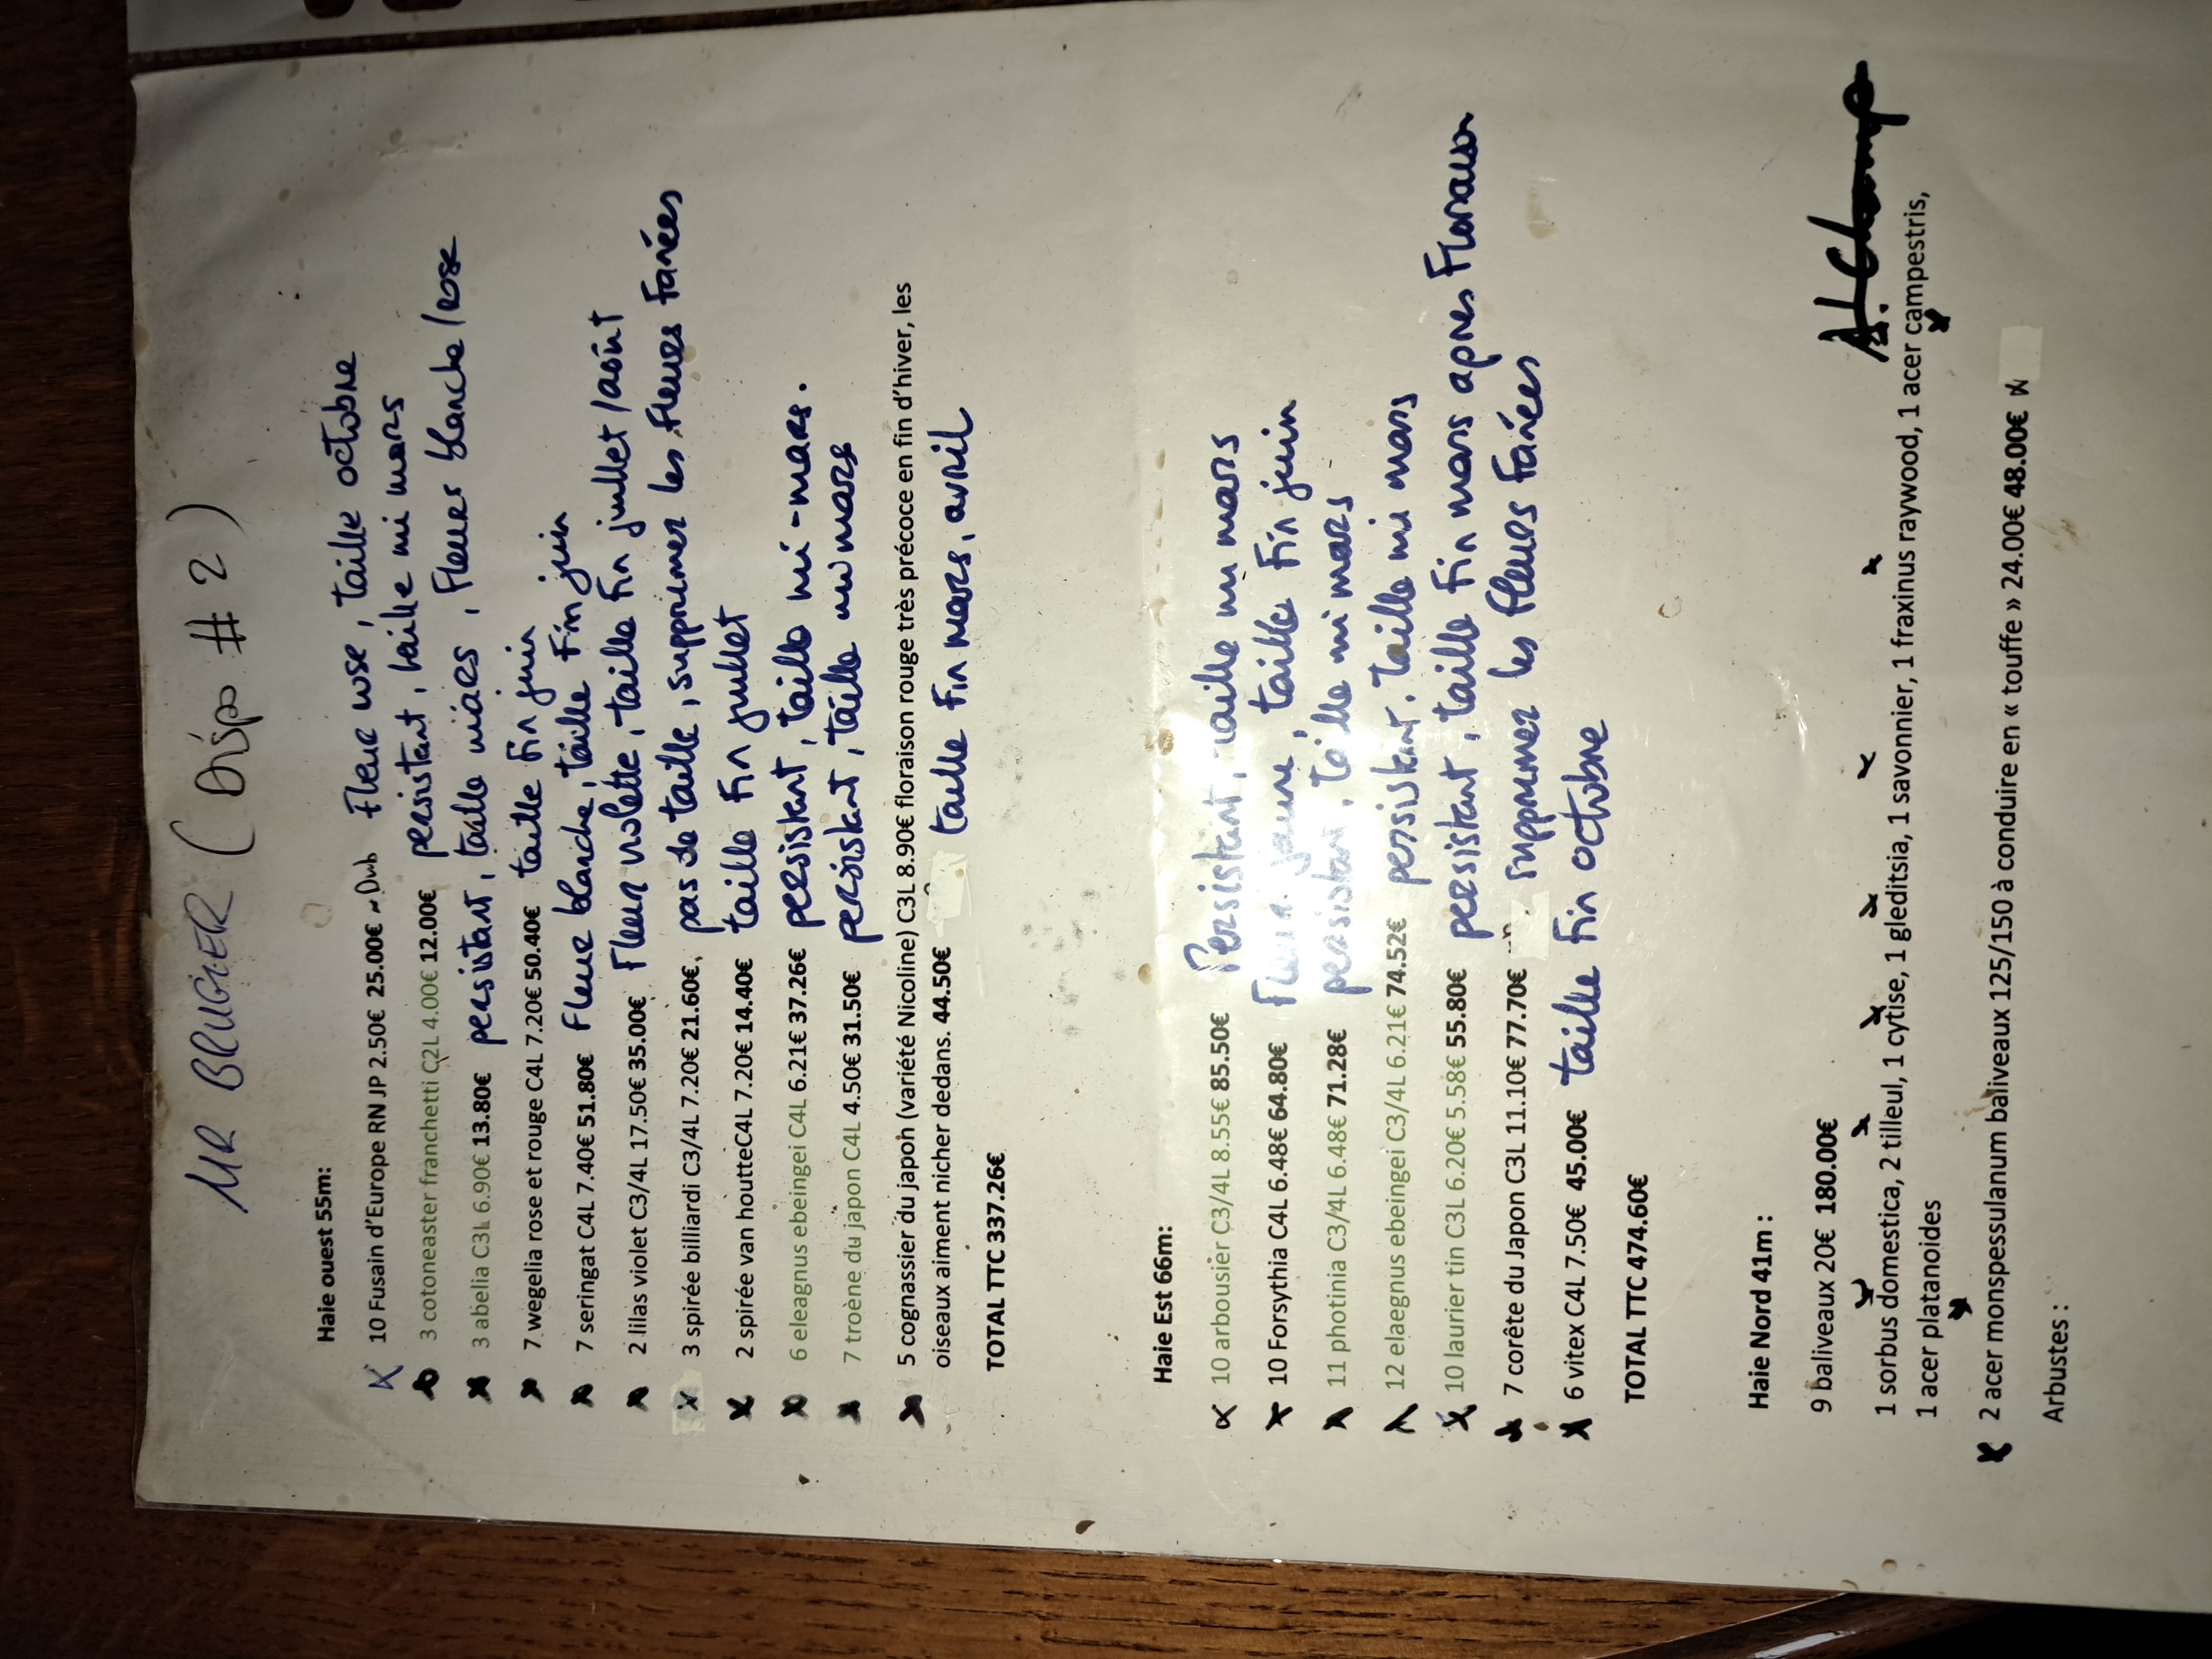 MR BRUGIER (Disp # 2)
Haie ouest 55m:
10 Fusain d'Europe RN JP 2.50€ 25.00€ Fleur rose, taille octobre
3 cotoneaster franchetti C2L 4.00€ 12.00€ persistant, taille mi mars
3 abelia C3L 6.90€ 13.80€ persistant, taille mars, Fleurs blanche/rose
7 wegelia rose et rouge C4L 7.20€ 50.40€ taille Fin juin
7 seringat C4L 7.40€ 51.80€ Fleur blanche, taille Fin juin
2 lilas violet C3/4L 17.50€ 35.00€ Fleur violette, taille Fin juillet/août
3 spirée billiardi C3/4L 7.20€ 21.60€, pas de taille, supprimer les Fleurs Fanées
2 spirée van houtteC4L 7.20€ 14.40€ taille Fin juillet
6 eleagnus ebeingei C4L 6.21€ 37.26€ persistant, taille mi-mars.
7 troène du japon C4L 4.50€ 31.50€ persistant, taille mi mars
5 cognassier du japon (variété Nicoline) C3L 8.90€ floraison rouge très précoce en fin d'hiver, les
oiseaux aiment nicher dedans. 44.50€ taille Fin mars, avril
TOTAL TTC 337.26€
Haie Est 66m:
10 arbousier C3/4L 8.55€ 85.50€ Persistant, taille mi mars
10 Forsythia C4L 6.48€ 64.80€ Fleur jaune, taille Fin juin
11 photinia C3/4L 6.48€ 71.28€ persistant, taille mi mars
12 elaegnus ebeingei C3/4L 6.21€ 74.52€ persistant. taille mi mars
10 laurier tin C3L 6.20€ 5.58€ 55.80€ persistant, taille Fin mars apres Floraison
7 corête du Japon C3L 11.10€ 77.70€ supprimer les Fleurs Fanées
6 vitex C4L 7.50€ 45.00€ taille Fin octobre
TOTAL TTC 474.60€
Haie Nord 41m :
9 baliveaux 20€ 180.00€
1 sorbus domestica, 2 tilleul, 1 cytise, 1 gleditsia, 1 savonnier, 1 fraxinus raywood, 1 acer campestris,
1 acer platanoides
2 acer monspessulanum baliveaux 125/150 à conduire en « touffe » 24.00€ 48.00€
Arbustes :